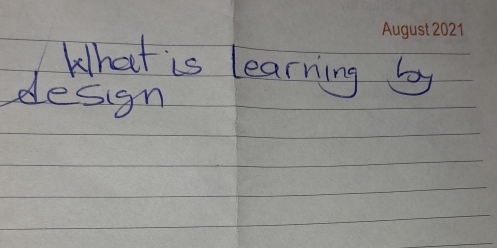 August 2021
What is learning by
design